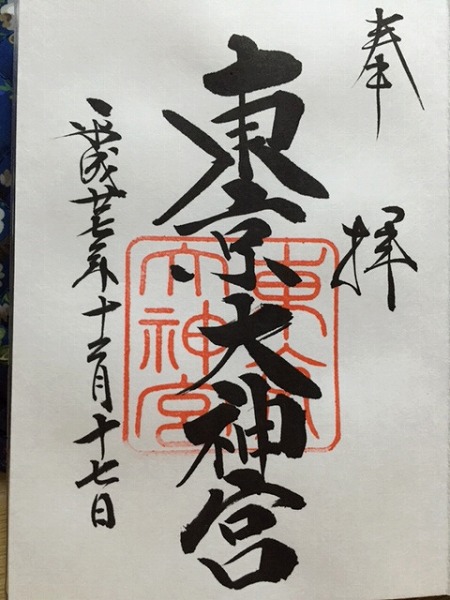 奉拝
東京大神宮
東京大神宮
平成廿七年十二月十七日